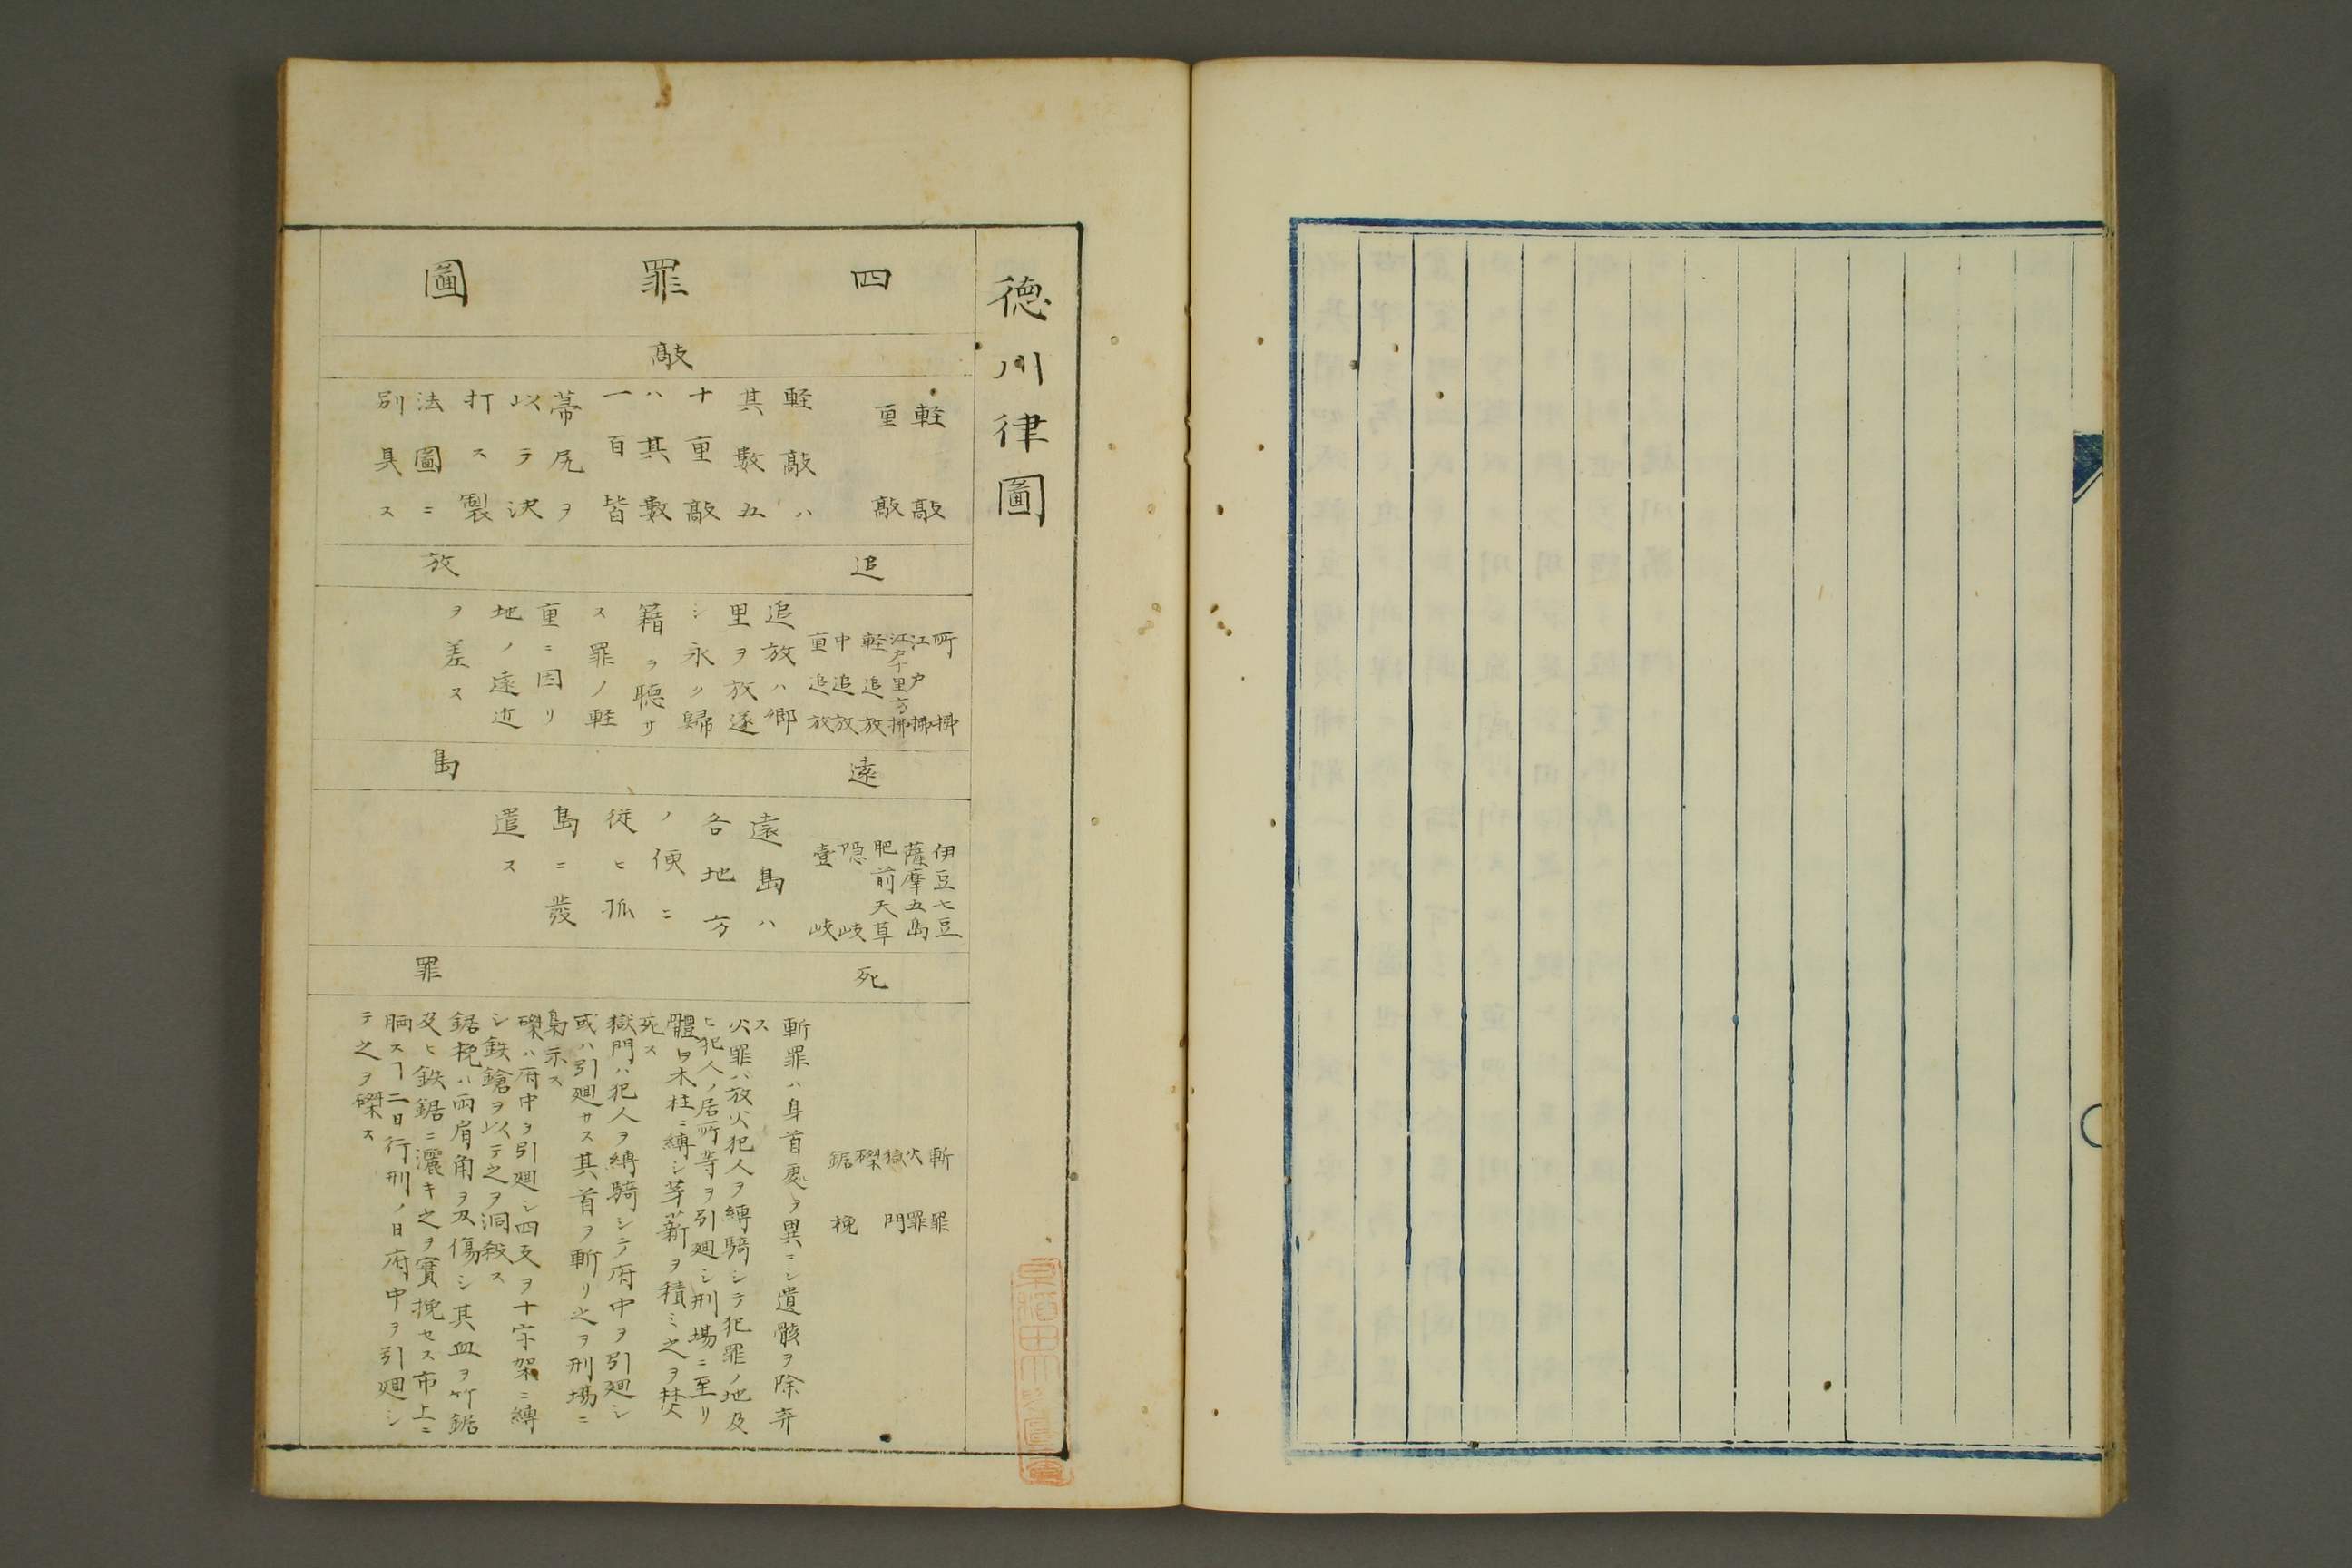 徳川律圖
四罪圖
敲
軽敲
重敲
軽敲ハ
其數五
十重敲
ハ其數
一百皆
箒尻ヲ
以テ決
打ス製
法圖ニ
別具ス
追放
所拂
江戸拂
江戸十里方拂
軽追放
中追放
重追放
追放ハ郷
里ヲ放逐
シ永ク歸
籍ヲ聴サ
ス罪ノ軽
重ニ因リ
地ノ遠近
ヲ差ス
遠島
伊豆七豆
薩摩五島
肥前天草
隠岐
壹岐
遠島ハ
各地方
ノ便ニ
従ヒ孤
島ニ發
遣ス
死罪
斬罪
火罪
獄門
磔
鋸挽
斬罪ハ身首處ヲ異ニシ遺骸ヲ除弃
ス
火罪ハ放火犯人ヲ縛騎シテ犯罪ノ地及
ヒ犯人ノ居所等ヲ引廻シ刑場ニ至リ
體ヲ木柱ニ縛シ茅薪ヲ積ミ之ヲ焚
死ス
獄門ハ犯人ヲ縛騎シテ府中ヲ引廻シ
或ハ引廻サス其首ヲ斬リ之ヲ刑場ニ
梟示ス
磔ハ府中ヲ引廻シ四支ヲ十字架ニ縛
シ鉄鎗ヲ以テ之ヲ洞殺ス
鋸挽ハ両肩角ヲ刄傷シ其血ヲ竹鋸
及ヒ鉄鋸ニ灑キ之ヲ實挽セス市上ニ
脼スヿ二日行刑ノ日府中ヲ引廻シ
テ之ヲ磔ス